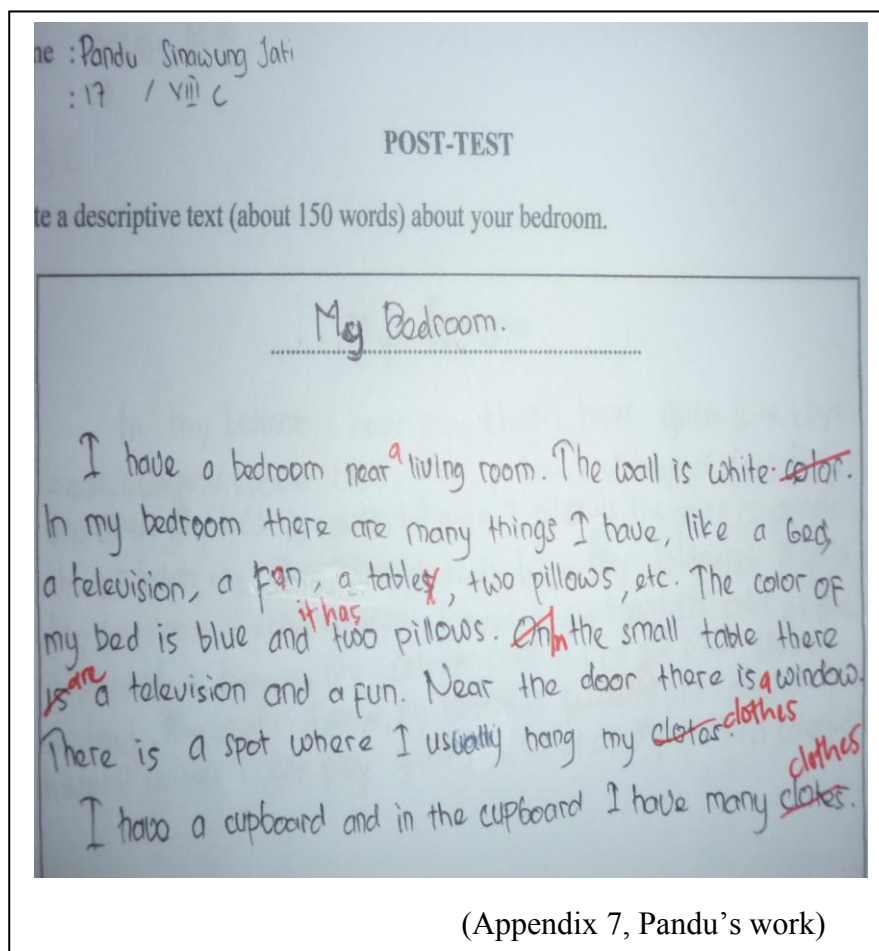 ne : Pandu Sinawung Jati
: 17 / VIII C
POST-TEST
te a descriptive text (about 150 words) about your bedroom.
My Bedroom.
a
I have a bedroom near living room. The wall is white. color.
In my bedroom there are many things I have, like a bed,
a television, a fan, a tables, two pillows, etc. The color of
it has
my bed is blue and two pillows. On In the small table there
are
is a television and a fun. Near the door there is a window.
clothes
There is a spot where I usually hang my clotes.
clothes
I have a cupboard and in the cupboard I have many clotes.
(Appendix 7, Pandu's work)